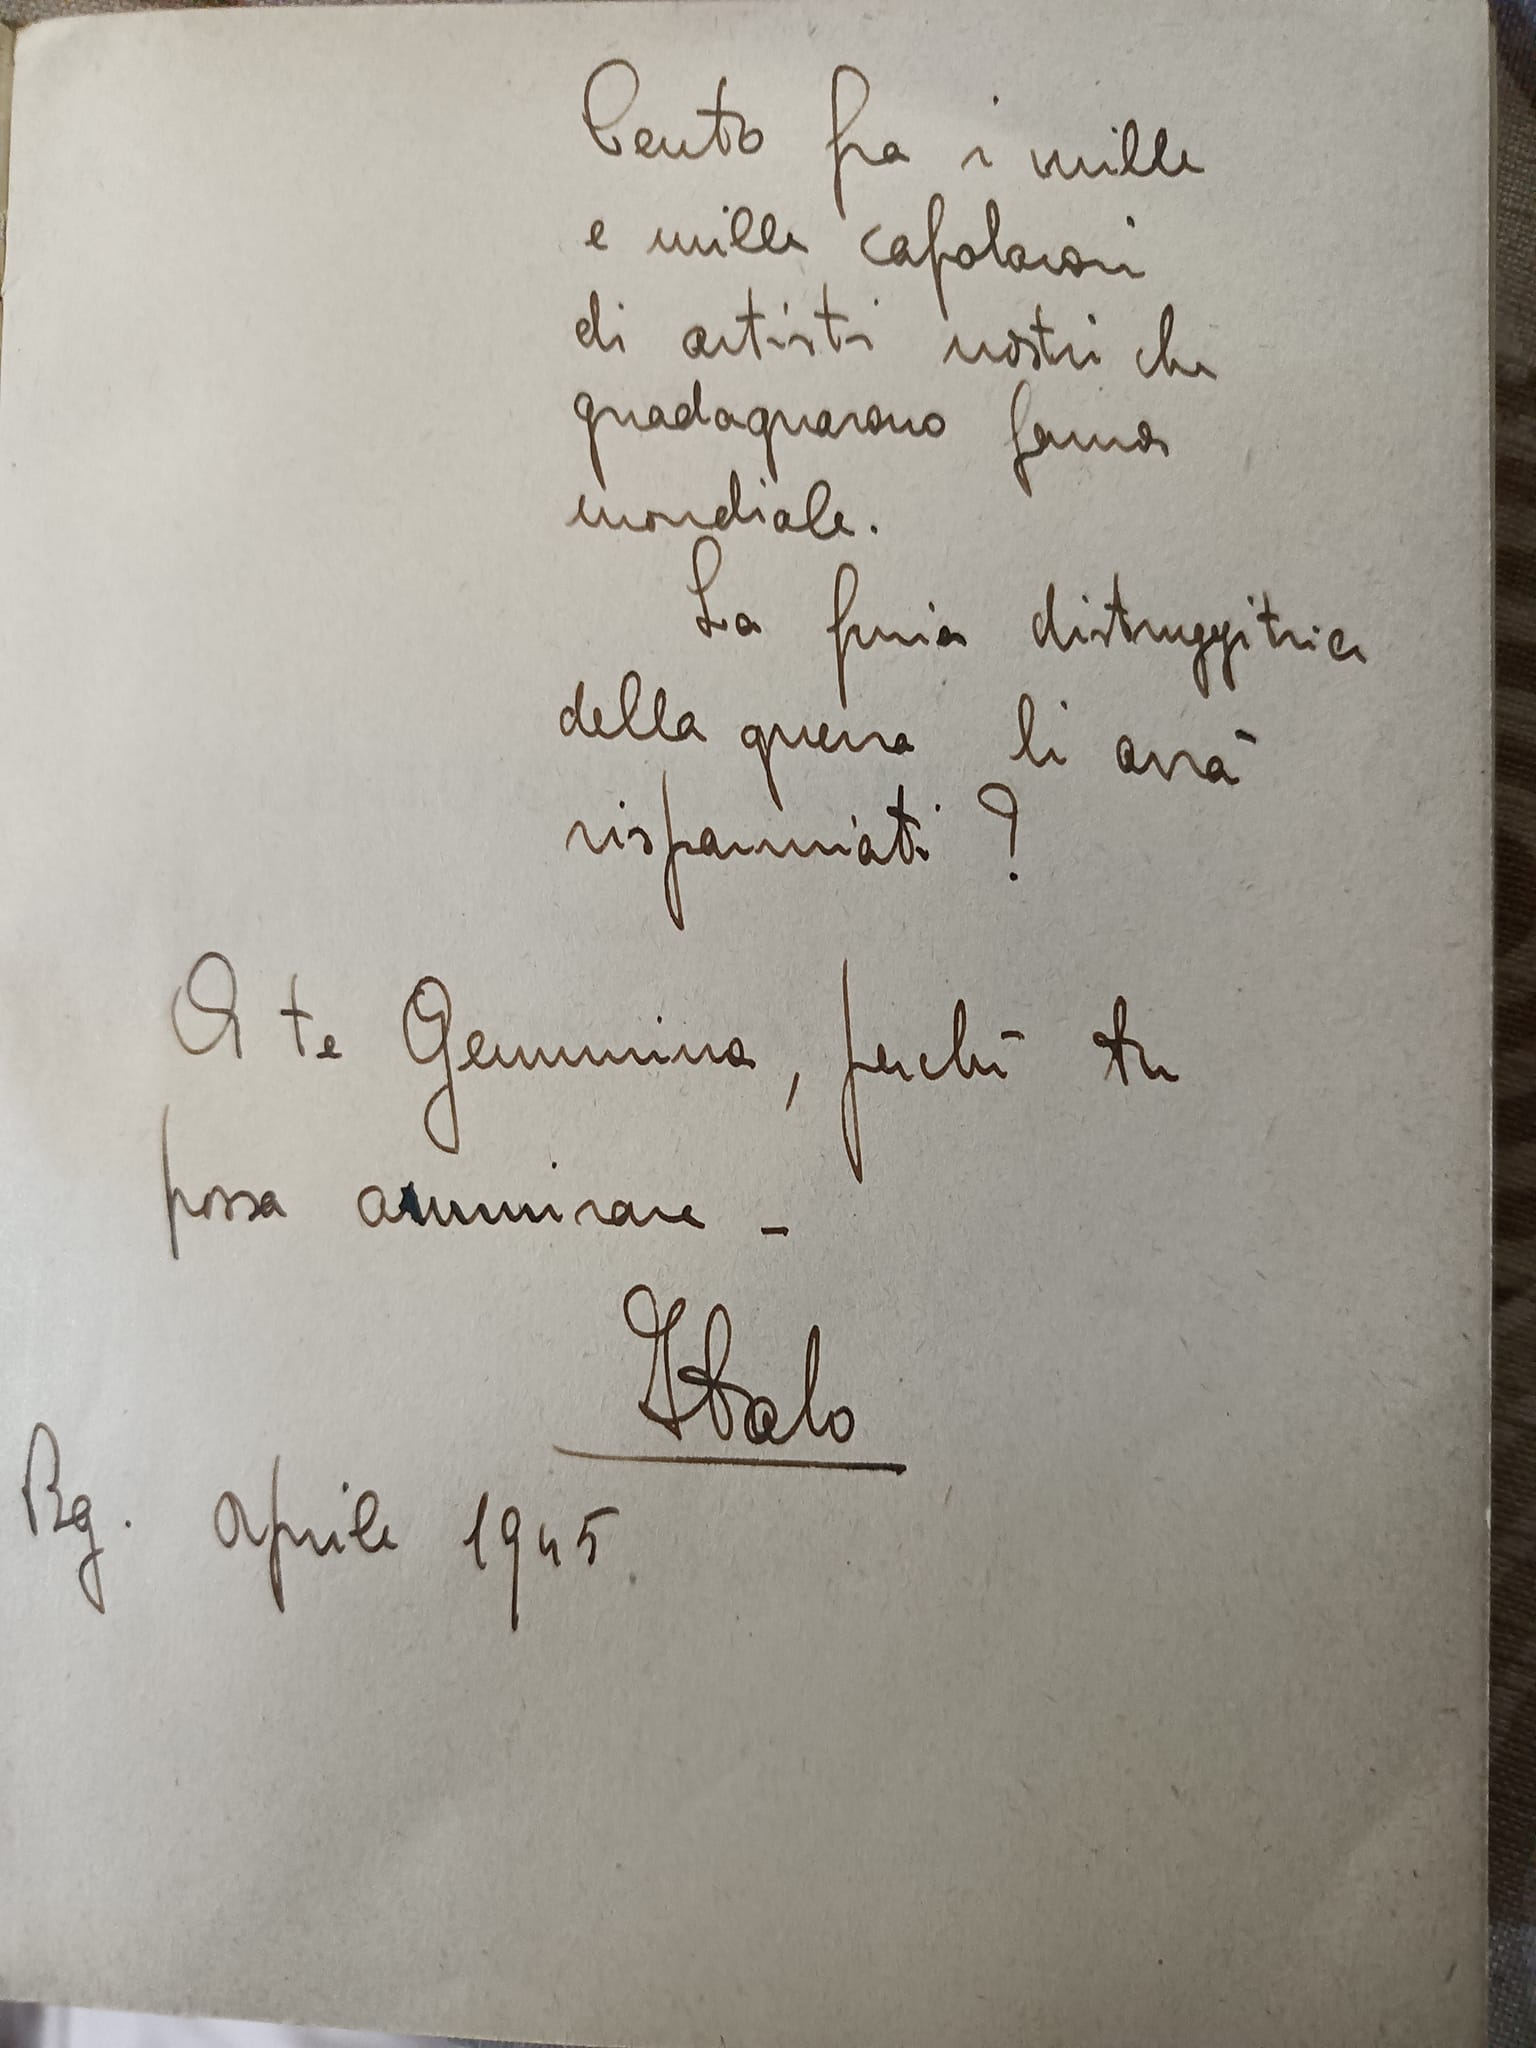 Cento fra i mille
e mille capolavori
di artisti nostri che
guadagnarono fama
mondiale.
La furia distruggitrice
della guerra li avrà
risparmiati?
A te Gemmina, perchè tu
possa ammirare -
Italo
Bg. Aprile 1945